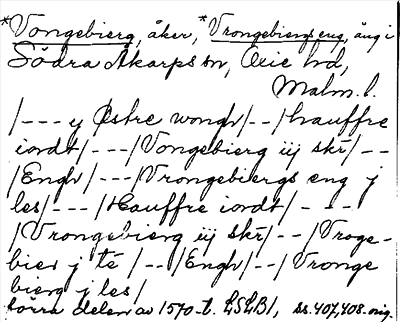 *Vongebierg, åker, *Vrongebiergs eng, äng i
Södra Åkarps sn, Oxie hd,
Malm. l.
/--- y Østre wongh/--/hauffre
iordt/---/Vongebierg iij skr/--
/Engh/---/Vrongebiergs eng j
les/---/Hauffre iordt/---
/Vrongebierg iij skr/--/Vroge-
bier j té/--/Engh/--/Vronge
bierg j les/
förra delen av 1570-t. LSLB1, ss. 407, 408. orig.